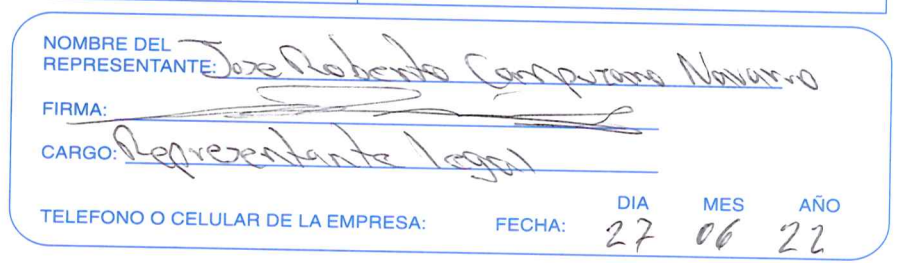 NOMBRE DEL
REPRESENTANTE: Jose Roberto Campuzano Navarro
FIRMA:
CARGO: Representante legal
DIA MES AÑO
TELEFONO O CELULAR DE LA EMPRESA: FECHA: 27 06 22